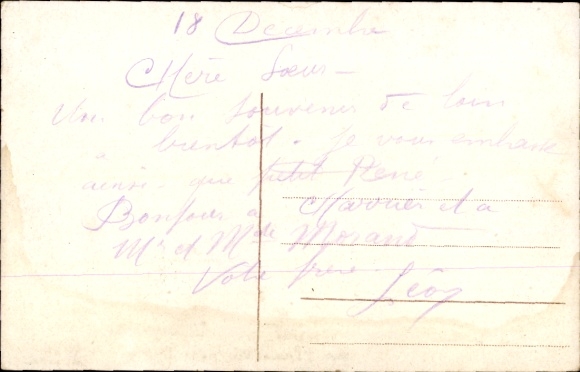 18 Decembre
Chère Sœur -
Un bon souvenir de loin
a bientôt. Je vous embrasse
ainsi que petit René
Bonjour a et a
Mr et Mde Morand
Votre frère
Léon